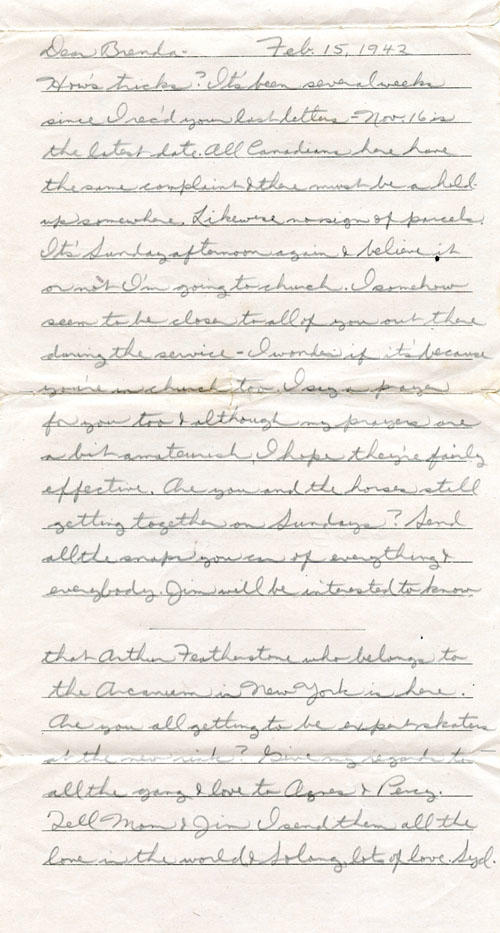 Dear Brenda- Feb. 15, 1942
How's tricks? It's been several weeks
since I rec'd your last letters - Nov. 16 is
the latest date. All Canadians here have
the same complaint & there must be a hold-
up somewhere. Likewise no sign of parcels.
It's Sunday afternoon again & believe it
or not I'm going to church. I somehow
seem to be closer to all of you out there
during the service - I wonder if it's because
you're in church too. I say a prayer
for you too & although my prayers are
a bit amateurish, I hope they're fairly
effective. Are you and the horses still
getting together on Sundays? Send
all the snaps you can of everything &
everybody. Jim will be interested to know
that Arthur Featherstone who belongs to
the Arcanum in New York is here.
Are you all getting to be expert skaters
at the new rink? Give my regards to
all the gang & love to Agnes & Percy.
Tell Mom & Jim I send them all the
love in the world & So long, lots of love. Syd.